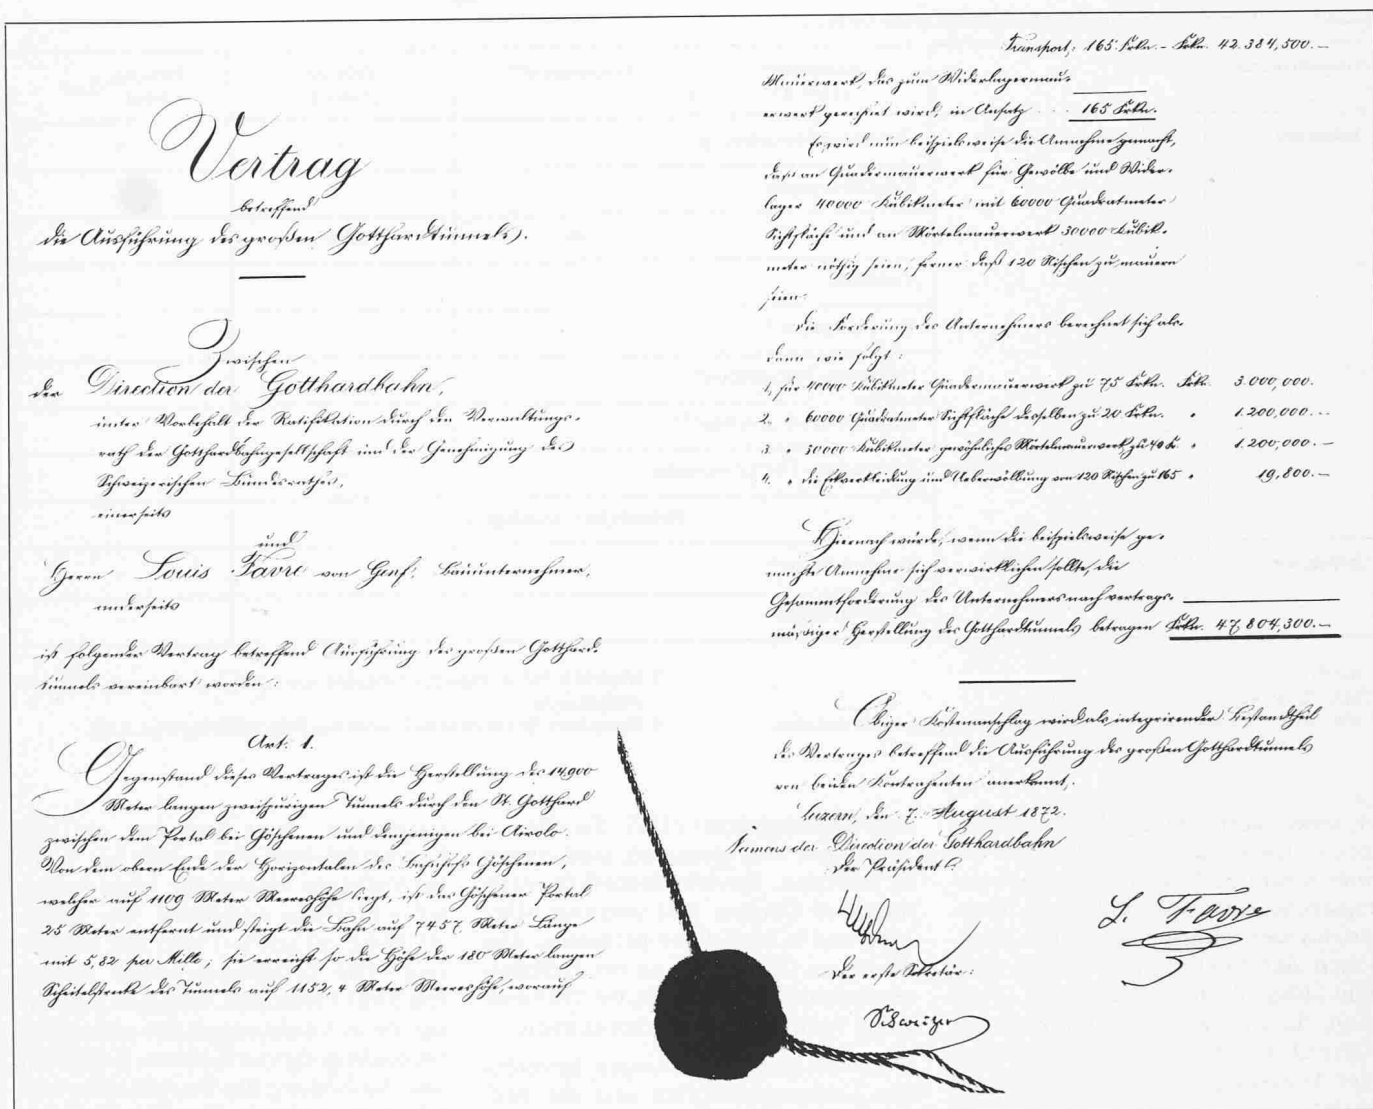 Vertrag
betreffend
die Ausführung des großen Gotthardtunnels.
Zwischen
der Direction der Gotthardbahn,
unter Vorbehalt der Ratifikation durch den Verwaltungs-
rath der Gotthardbahngesellschaft und der Genehmigung des
Schweizerischen Bundesrathes,
einerseits
und
Herrn Louis Favre von Genf, Bauunternehmer,
anderseits
ist folgender Vertrag betreffend Ausführung des großen Gotthard-
tunnels vereinbart worden:
Art. 1.
Gegenstand dieses Vertrages ist die Herstellung des 14,900
Meter langen zweispurigen Tunnels durch den St. Gotthard
zwischen dem Portal bei Göschenen und demjenigen bei Airolo.
Von dem obern Ende der Horizontalen des Bahnhofs Göschenen,
welcher auf 1109 Meter Meereshöhe liegt, ist das Göschener Portal
25 Meter entfernt und steigt die Bahn auf 7457 Meter Länge
mit 5,82 per Mille; sie erreicht so die Höhe der 180 Meter langen
Scheitelstrecke des Tunnels auf 1152,4 Meter Meereshöhe, worauf
Transport: 165 Frkn. - Frkn. 42.384,500.—
Mauerwerk, das zum Widerlagermau-
erwerk gerechnet wird, in Ansatz . . . 165 Frkn.
Es wird nun beispielsweise die Annahme gemacht,
daß an Quadermauerwerk für Gewölbe und Wider-
lager 40000 Kubikmeter mit 60000 Quadratmeter
Sichtfläche und an Mörtelmauerwerk 30000 Kubik-
meter nöthig seien, ferner daß 120 Nischen zu mauern
seien.
Die Forderung des Unternehmers berechnet sich als-
dann wie folgt:
1, für 40000 Kubikmeter Quadermauerwerk zu 75 Frkn. Frkn. 3.000,000.
2. " 60000 Quadratmeter Sichtfläche desselben zu 20 Frkn. " 1.200,000.—
3. " 30000 Kubikmeter gewöhnliches Mörtelmauerwerk zu 40 F. " 1.200,000.—
4. " die Eckverkleidung und Ueberwölbung von 120 Nischen zu 165 " 19,800.—
Hiernach würde, wenn die beispielsweise ge-
machte Annahme sich verwirklichen sollte, die
Gesammtforderung des Unternehmers nach vertrags-
mäßiger Herstellung des Gotthardtunnels betragen Frkn. 47,804,300.—
Obiger Kostenanschlag wird als integrirender Bestandtheil
des Vertrages betreffend die Ausführung des großen Gotthardtunnels
von beiden Kontrahenten anerkannt.
Luzern, den 7. August 1872.
Namens der Direction der Gotthardbahn
Der Präsident:
L. Favre
Der erste Sekretär:
Schweizer